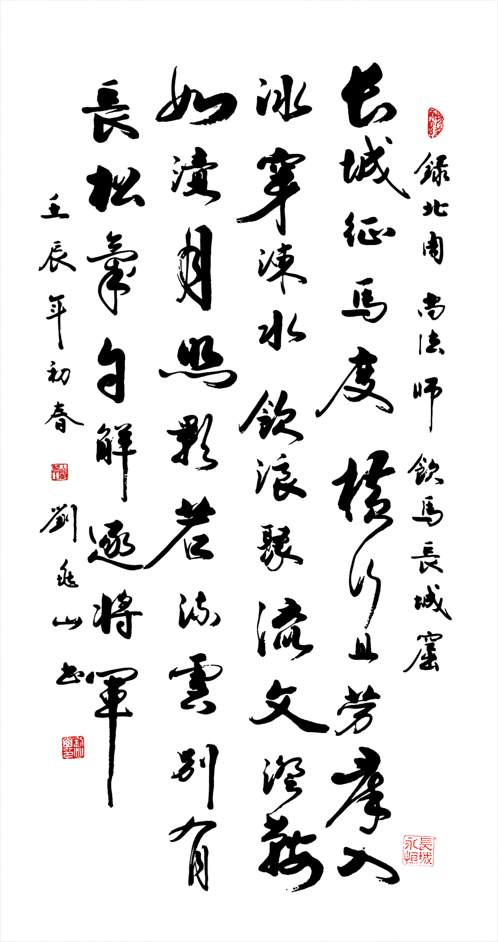 錄北周尚法师飲馬長城窟
长城征馬度橫行且劳羣入
冰穿凍水飲浪聚流文澄鞍
如漬月照影若流雲别有
長松氣自解逐將軍
壬辰年初春
劉山书
長城永恒